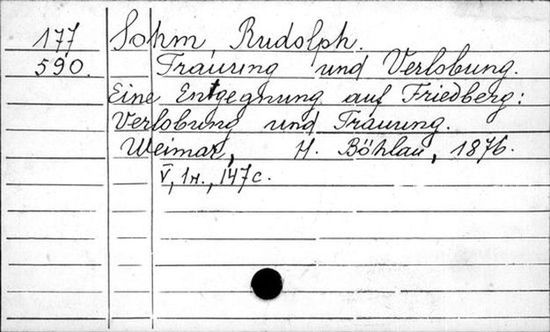 177 Sohm, Rudolph.
590. Trauung und Verlobung.
Eine Entgegnung auf Friedberg:
Verlobung und Trauung.
Weimar, H. Böhlau, 1876.
V, 1н., 147 с.